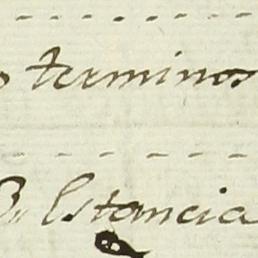 terminos
Estancia